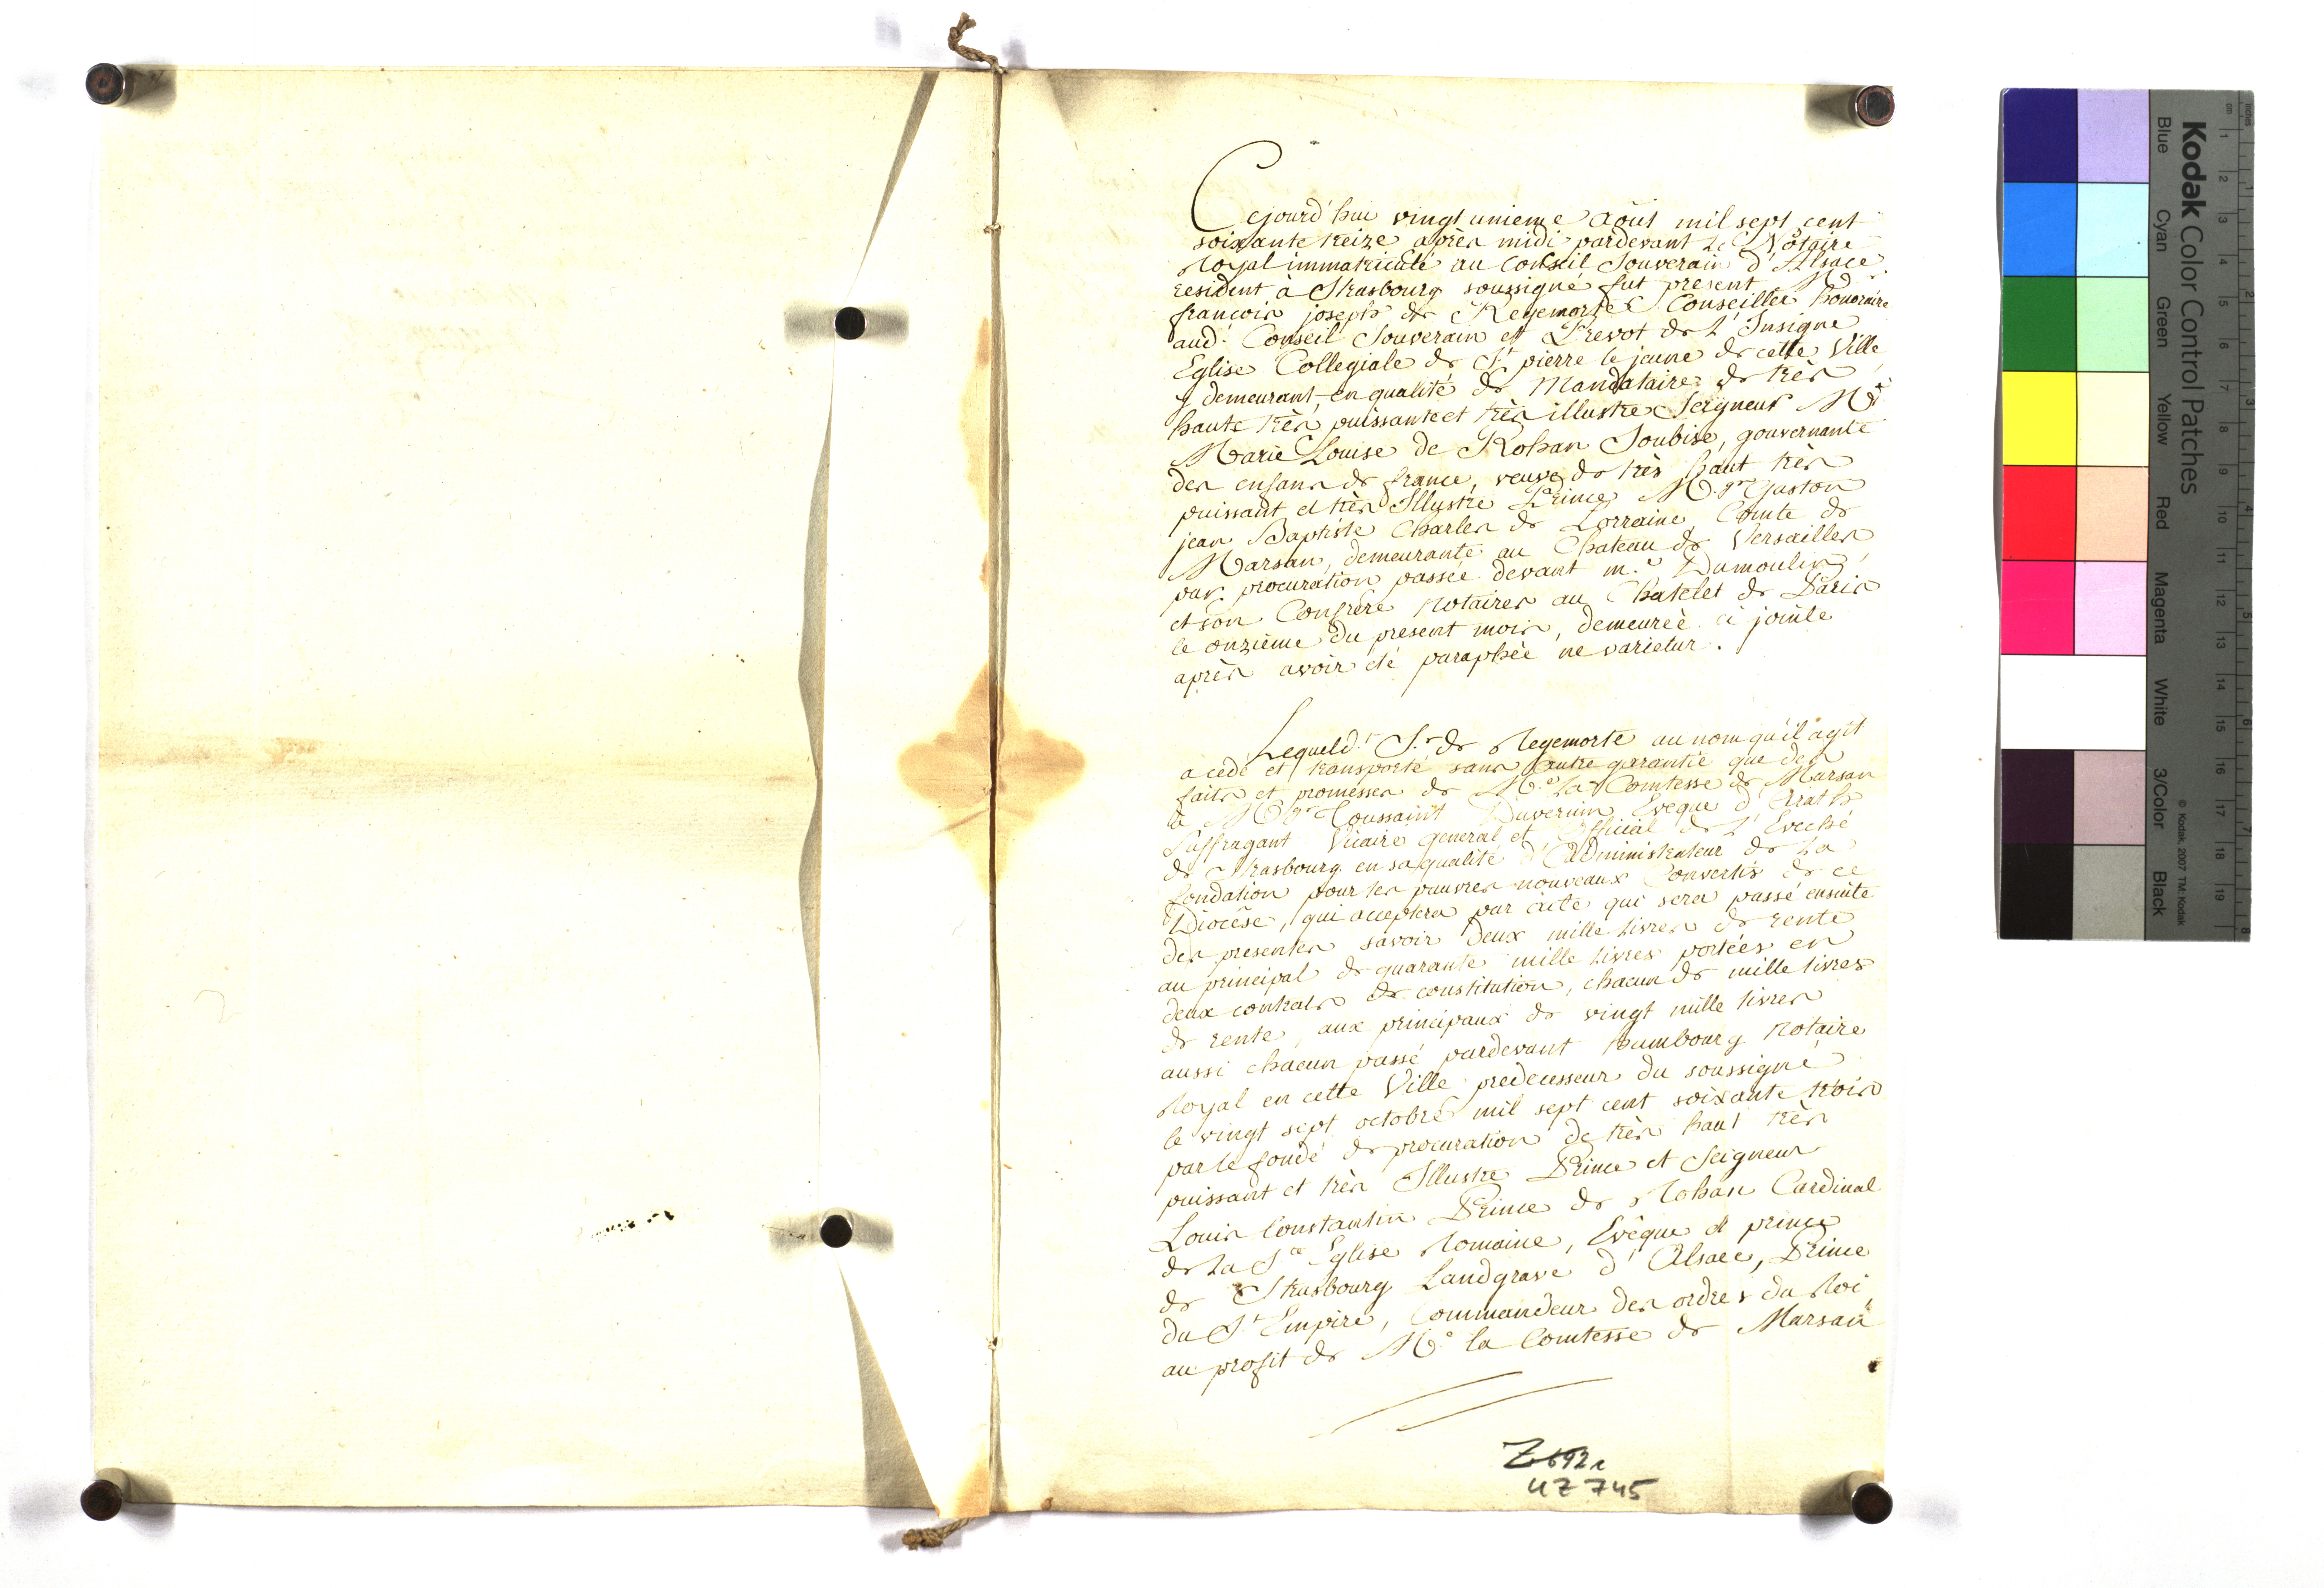 Cejourd'hui vingt unieme Août mil sept cent
soixante treize après midi pardevant Le Notaire
Royal immatriculé au Conseil Souverain d'Alsace
resident à Strasbourg soussigné fut présent M.
françois joseph de Regemorte Conseiller honoraire
aud. Conseil Souverain et Prevot de L'Insigne
Eglise Collegiale de St. pierre le jeune de cette Ville
y demeurant, en qualité de Mandataire de très
haute très puissante et très illustre Seigneur Me.
Marie Louise de Rohan Soubise, gouvernante
des enfans de france, veuve de très haut très
puissant et très Illustre Prince M.gr Gaston
jean Baptiste Charles de Lorraine, Comte de
Marsan, demeurante au Chateau de Versailles
par procuration passée devant m.e Dumoulin
et son Confrere Notaires au Chatelet de Paris
le onzième du present mois, demeurée ci jointe
après avoir été paraphée ne varietur.
Lequeld.t S.r de Regemorte au nom qu'il agit
a cedé et transporté sans autre garantie que des
faits et promesses de M.e La Comtesse de Marsan
à M.gr Toussaint Duvernin Eveque d'Arath
Suffragant Vicaire general et Official de L'Eveché
de Strasbourg en sa qualité d'Administrateur de La
fondation pour les pauvres nouveaux Convertis de ce
Diocèse, qui acceptera par acte qui sera passé ensuite
des presentes savoir deux mille livres de rente
au principal de quarante mille livres portées en
deux contrats de constitution, chacun de mille livres
de rente, aux principaux de vingt mille livres
aussi chacun passé pardevant Humbourg Notaire
Royal en cette Ville predecesseur du soussigné
le vingt sept octobre mil sept cent soixante trois
par le fondé de procuration de très haut très
puissant et très Illustre Prince et Seigneur
Louis Constantin Prince de Rohan Cardinal
de La S.te Eglise Romaine, Evêque et prince
de Strasbourg Landgrave d'Alsace, Prince
du S.t Empire, Commandeur des ordres du Roi,
au profit de M.e la Comtesse de Marsan
Z 692 1
4Z 745
Kodak Color Control Patches
© Kodak, 2007 TM: Kodak
Blue Cyan Green Yellow Red Magenta White 3/Color Black
cm 1 2 3 4 5 6 7 8 9 10 11 12 13 14 15 16 17 18 19
inches 1 2 3 4 5 6 7 8